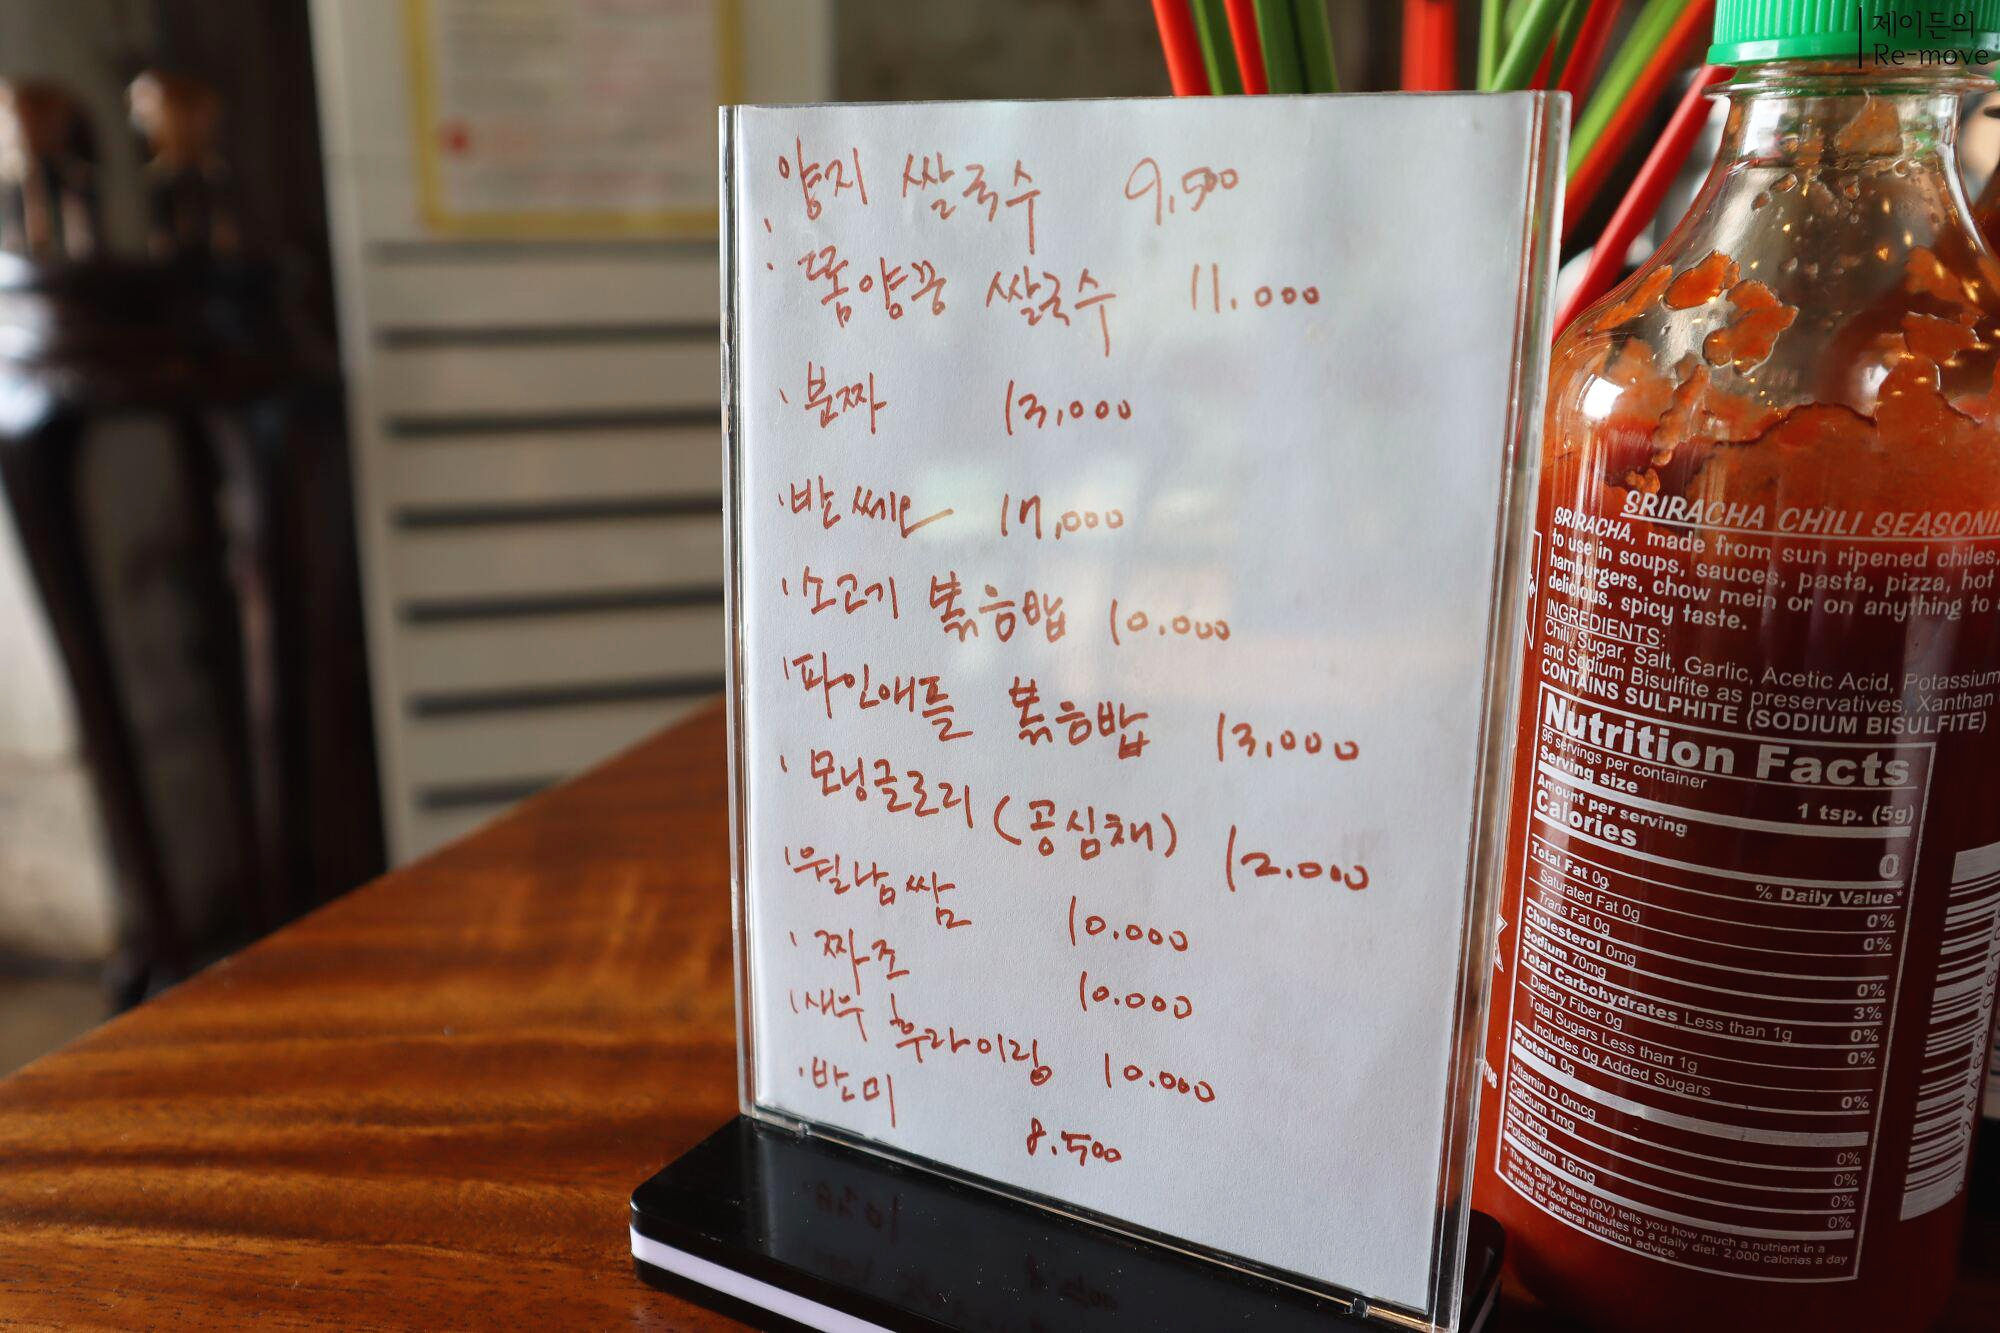 제이든의
Re-move
· 양지 쌀국수 9,500
· 똠양꿍 쌀국수 11.000
· 분짜 13,000
· 반쎄오 17,000
· 소고기 볶음밥 10.000
· 파인애플 볶음밥 13,000
· 모닝글로리 (공심채) 12.000
· 월남쌈 10.000
· 짜조 10.000
· 새우 후라이링 10.000
· 반미 8.500
SRIRACHA CHILI
SRIRACHA, made from sun ripened chiles,
to use in soups, sauces, pasta, pizza, hot
hamburgers, chow mein or on anything to
delicious, spicy taste.
INGREDIENTS:
Chili, Sugar, Salt, Garlic, Acetic Acid, Potassium
and Sodium Bisulfite as preservatives, Xanthan
CONTAINS SULPHITE (SODIUM BISULFITE)
Nutrition Facts
96 servings per container
Serving size 1 tsp. (5g)
Amount per serving
Calories 0
% Daily Value*
Total Fat 0g 0%
Saturated Fat 0g 0%
Trans Fat 0g
Cholesterol 0mg 0%
Sodium 70mg 3%
Total Carbohydrates Less than 1g 0%
Dietary Fiber 0g 0%
Total Sugars Less than 1g
Includes 0g Added Sugars 0%
Protein 0g
Vitamin D 0mcg 0%
Calcium 1mg 0%
Iron 0mg 0%
Potassium 16mg 0%
* The % Daily Value (DV) tells you how much a nutrient in a
serving of food contributes to a daily diet. 2,000 calories a day
is used for general nutrition advice.